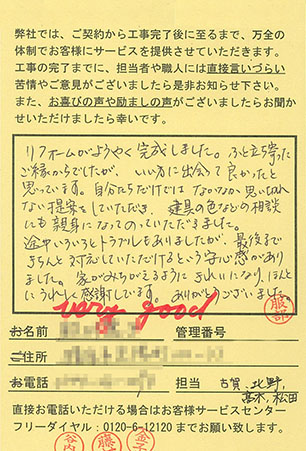 弊社では、ご契約から工事完了後に至るまで、万全の
体制でお客様にサービスを提供させていただきます。
工事の完了までに、担当者や職人には直接言いづらい
苦情やご意見がございましたら是非お知らせ下さい。
また、お喜びの声や励ましの声がございましたらお聞か
せいただけましたら幸いです。
リフォームがようやく完成しました。ふと立ち寄った
ご縁からでしたが、いい方に出会えて良かったと
思っています。自分たちだけでは なかなか思いつかれ
ない提案をしていただき、建具の色などの相談
にも親身になってのっていただきました。
途中いろいろとトラブルもありましたが、最後まで
きちんと対応していただけるという安心感があり
ました。家がみちがえるように きれいになり、ほんと
にうれしく感謝しています。ありがとうございました。
very good
服部
お名前 管理番号
ご住所
お電話 担当 古賀、北野、
高木、松田
直接お電話いただける場合はお客様サービスセンター
フリーダイヤル：0120-6-12120 までお願い致します。
金子